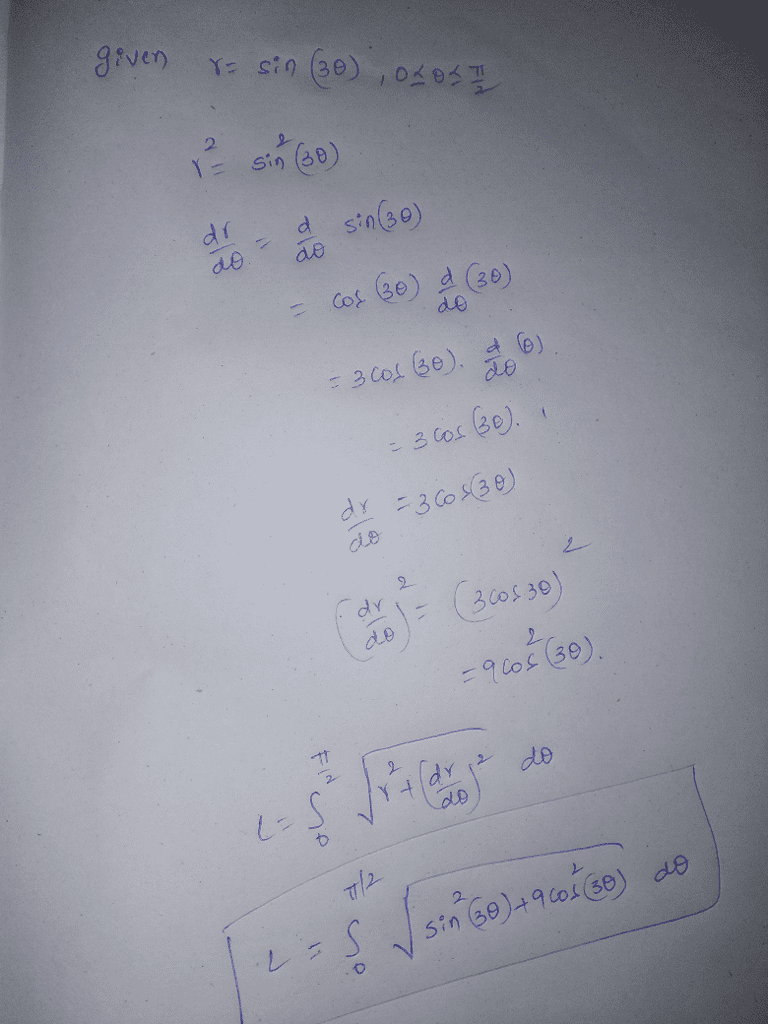 given r = sin (3θ), 0≤θ≤π/2
r² = sin²(3θ)
dr/dθ = d/dθ sin(3θ)
= cos (3θ) d/dθ (3θ)
= 3cos (3θ). d/dθ (θ)
= 3cos (3θ). 1
dr/dθ = 3cos(3θ)
(dr/dθ)² = (3cos3θ)²
= 9cos²(3θ).
L = ∫₀^π/2 √(r² + (dr/dθ)²) dθ
L = ∫₀^π/2 √(sin²(3θ)+9cos²(3θ)) dθ